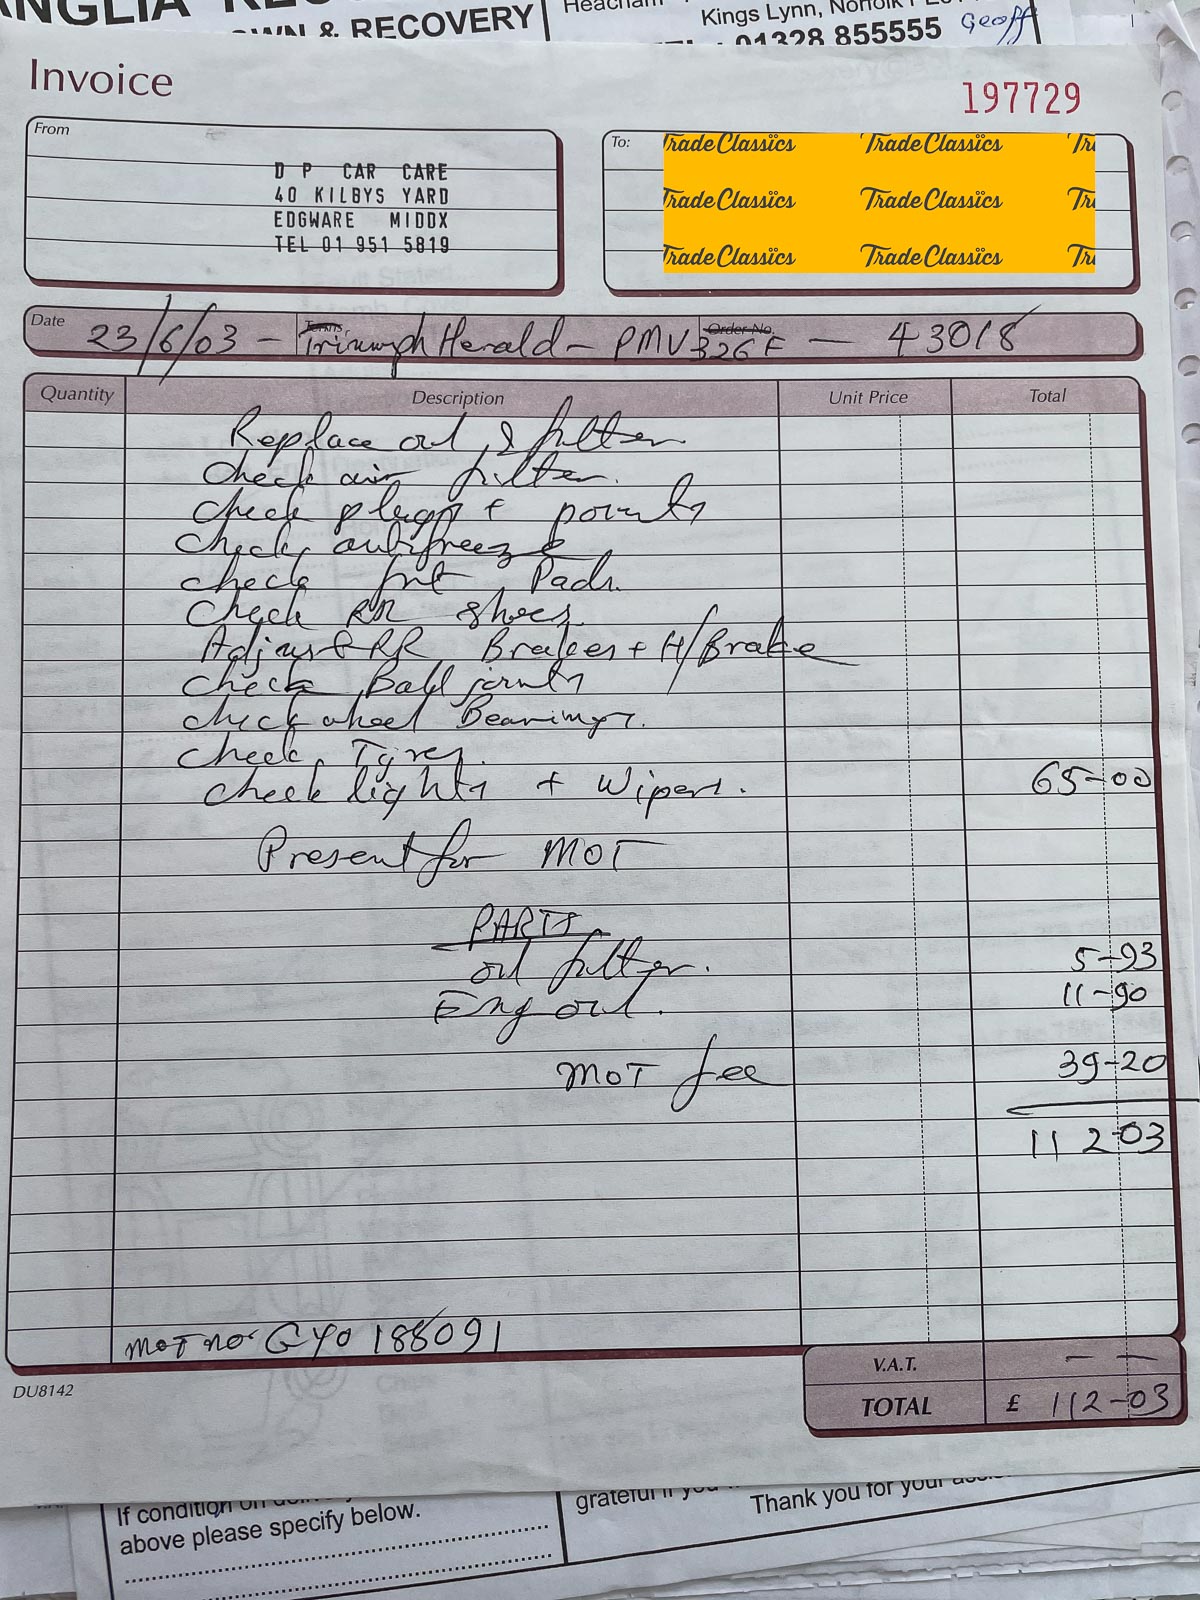 ANGLIA
OWN & RECOVERY
Heacham
Kings Lynn, Norfolk
01328 855555 Geoff
Invoice
197729
From
D P CAR CARE
40 KILBYS YARD
EDGWARE MIDDX
TEL 01 951 5819
To:
Trade Classics Trade Classics Tr
Trade Classics Trade Classics Tr
Trade Classics Trade Classics Tr
Date 23/6/03 - Terms Triumph Herald - PMV 326F Order No. - 43018
Quantity Description Unit Price Total
Replace oil & filter
check air filter.
check plugs + points
check antifreeze
check frt Pads.
check RR shoes
Adjust RR Brakes + H/Brake
check Ball joints
check wheel Bearings.
check Tyres.
check lights + Wipers. 65-00
Present for MOT
PARTS
oil filter. 5-93
Eng oil. 11-90
MOT fee 39-20
112-03
MOT no GYO 188091
V.A.T. — —
TOTAL £ 112-03
DU8142
If condition on
above please specify below.
grateful if you
Thank you for your